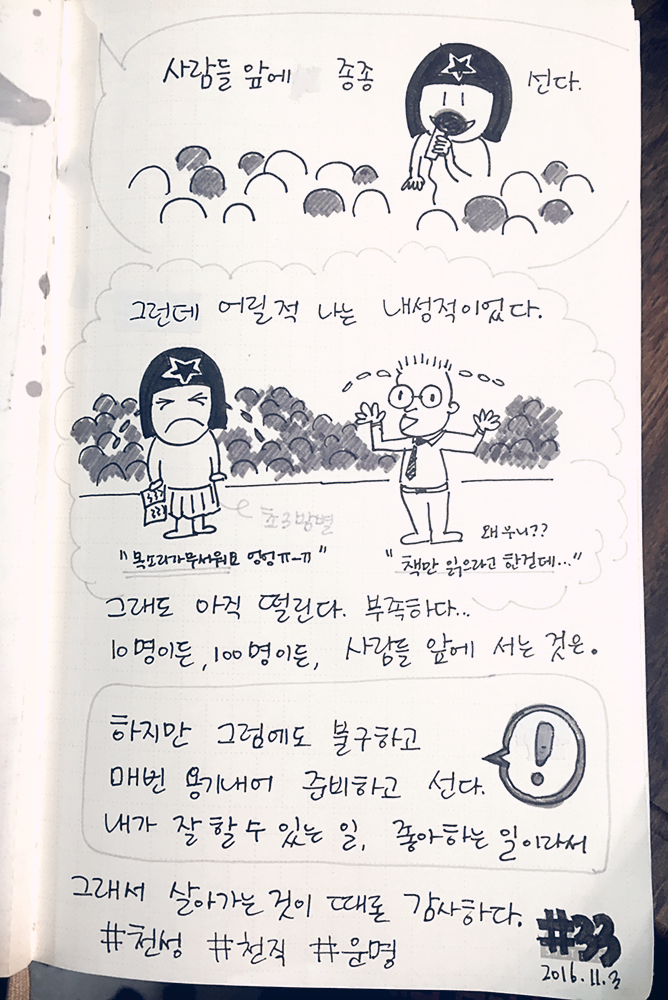 사람들 앞에 종종 선다.
그런데 어릴적 나는 내성적이었다.
초3방별
"목소리가무서워요 엉엉ㅠ-ㅠ"
왜 우니??
"책만 읽으라고 한건데..."
그래도 아직 떨린다. 부족하다..
10명이든, 100명이든, 사람들 앞에 서는 것은.
하지만 그럼에도 불구하고
매번 용기내어 준비하고 선다.
내가 잘 할 수 있는 일, 좋아하는 일이라서
!
그래서 살아가는 것이 때론 감사하다.
#천성 #천직 #운명
#33
2016.11.3